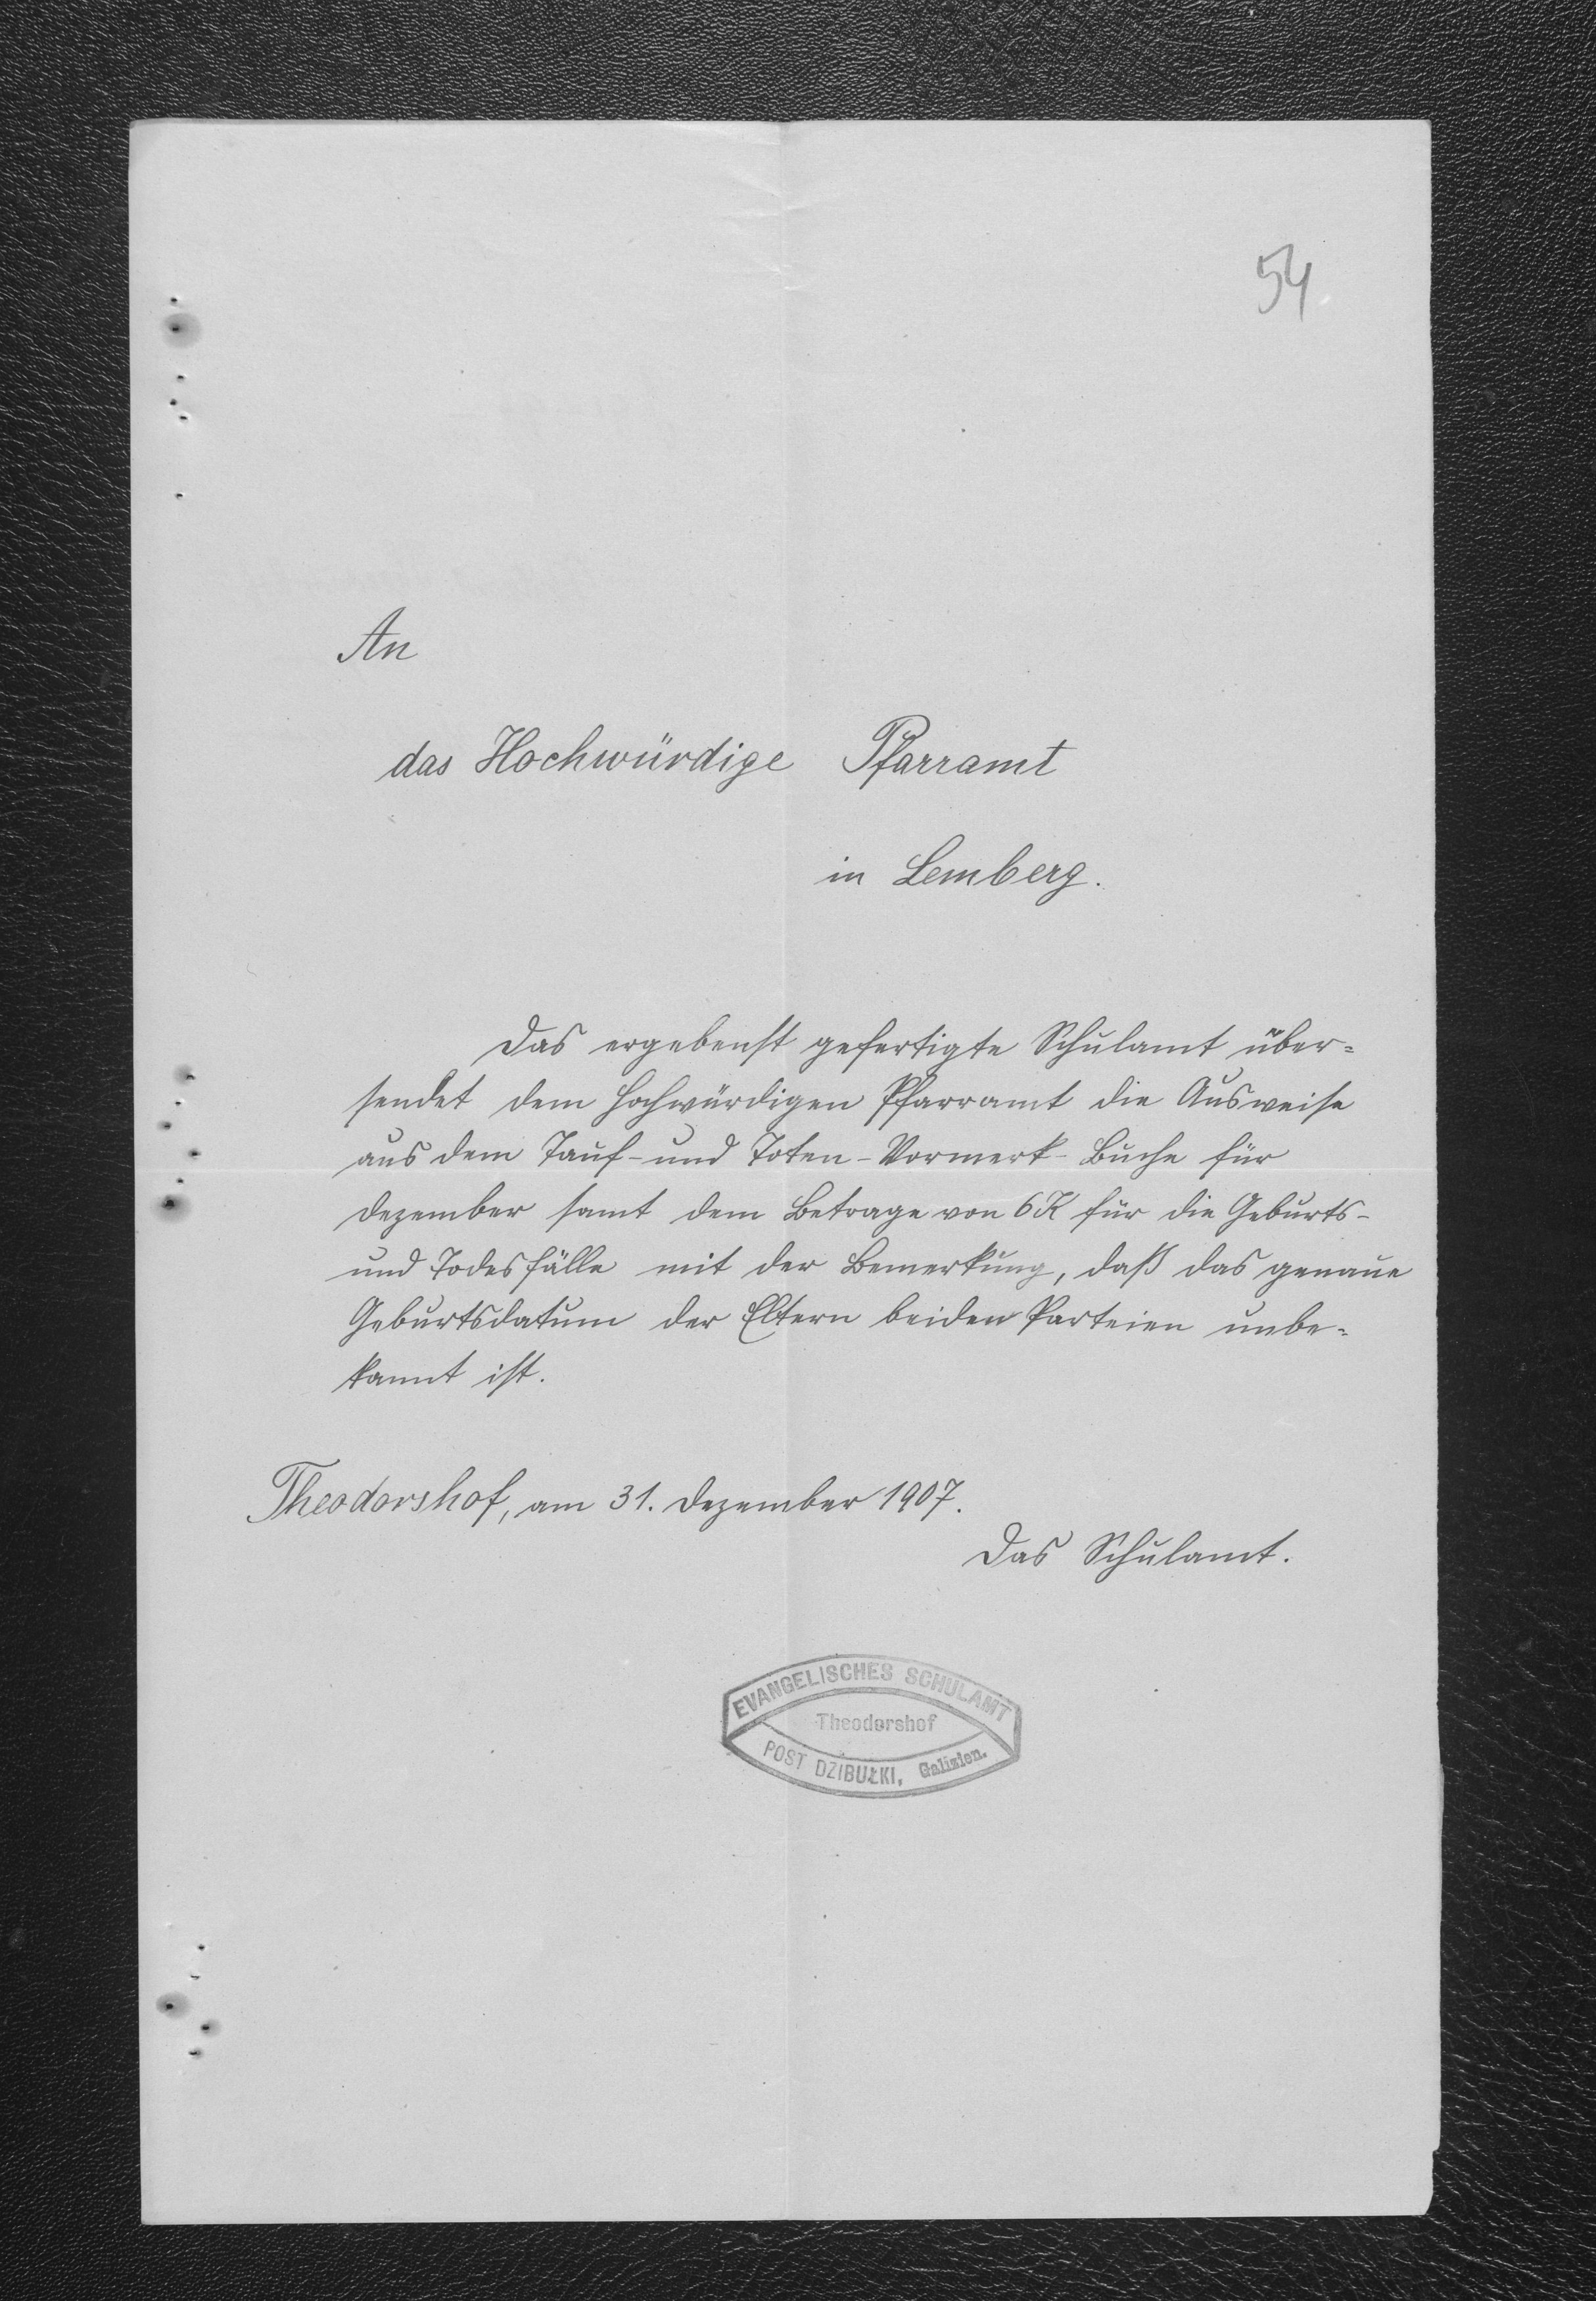 54
An
das Hochwürdige Pfarramt
in Lemberg.
Das ergebenst gefertigte Schulamt über=
sendet dem Hochwürdigen Pfarramt die Ausweise
aus dem Tauf- und Toten-Vormerk-Buche für
Dezember samt dem Betrage von 6 K für die Geburts-
und Todesfälle mit der Bemerkung, daß das genaue
Geburtsdatum der Eltern beiden Parteien unbe=
kannt ist.
Theodorshof, am 31. Dezember 1907.
Das Schulamt.
EVANGELISCHES SCHULAMT
Theodorshof
POST DZIBUŁKI, Galizien.